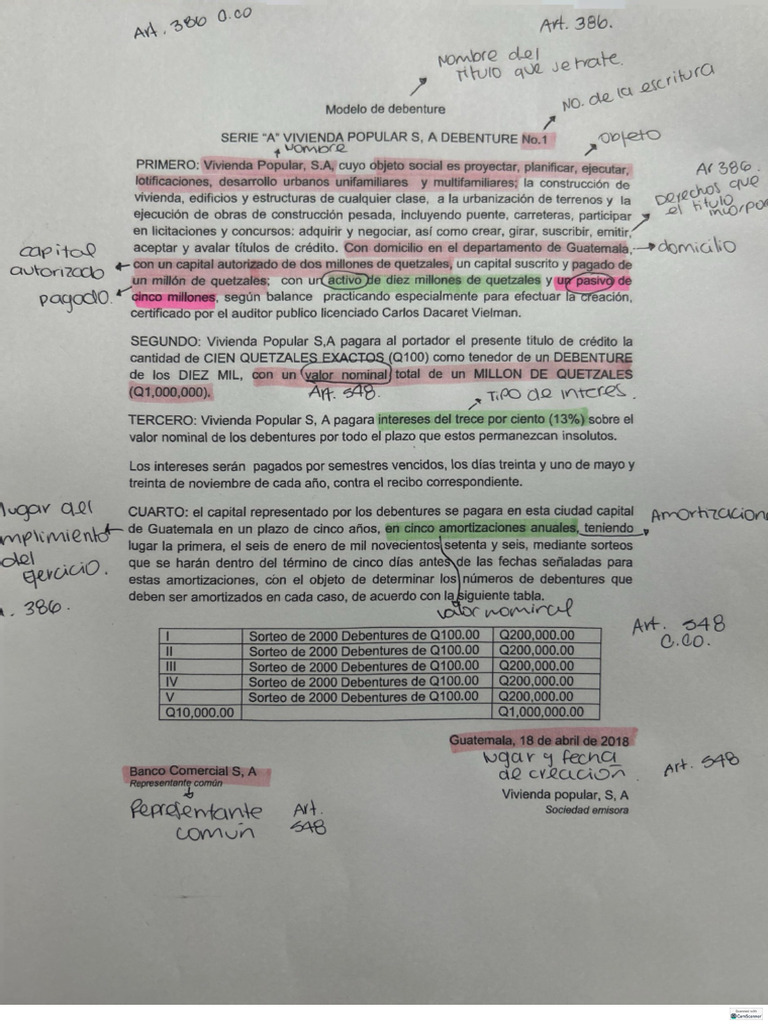 Art. 386 C.CO
Art. 386.
Nombre del
Titulo que se trate.
NO. de la escritura
Modelo de debenture
SERIE "A" VIVIENDA POPULAR S, A DEBENTURE No.1
Nombre
objeto
PRIMERO: Vivienda Popular, S.A, cuyo objeto social es proyectar, planificar, ejecutar,
lotificaciones, desarrollo urbanos unifamiliares y multifamiliares; la construcción de
vivienda, edificios y estructuras de cualquier clase, a la urbanización de terrenos y la
ejecución de obras de construcción pesada, incluyendo puente, carreteras, participar
en licitaciones y concursos: adquirir y negociar, así como crear, girar, suscribir, emitir,
aceptar y avalar títulos de crédito. Con domicilio en el departamento de Guatemala,
con un capital autorizado de dos millones de quetzales, un capital suscrito y pagado de
un millón de quetzales; con un activo de diez millones de quetzales y un pasivo de
cinco millones, según balance practicando especialmente para efectuar la creación,
certificado por el auditor publico licenciado Carlos Dacaret Vielman.
Ar 386.
Derechos que
el titulo incorpor
domicilio
capital
autorizado
pagado.
SEGUNDO: Vivienda Popular S,A pagara al portador el presente titulo de crédito la
cantidad de CIEN QUETZALES EXACTOS (Q100) como tenedor de un DEBENTURE
de los DIEZ MIL, con un valor nominal total de un MILLON DE QUETZALES
(Q1,000,000).
Art. 548.
Tipo de interes.
TERCERO: Vivienda Popular S, A pagara intereses del trece por ciento (13%) sobre el
valor nominal de los debentures por todo el plazo que estos permanezcan insolutos.
Los intereses serán pagados por semestres vencidos, los días treinta y uno de mayo y
treinta de noviembre de cada año, contra el recibo correspondiente.
CUARTO: el capital representado por los debentures se pagara en esta ciudad capital
de Guatemala en un plazo de cinco años, en cinco amortizaciones anuales, teniendo
lugar la primera, el seis de enero de mil novecientos setenta y seis, mediante sorteos
que se harán dentro del término de cinco días antes de las fechas señaladas para
estas amortizaciones, con el objeto de determinar los números de debentures que
deben ser amortizados en cada caso, de acuerdo con la siguiente tabla.
lugar del
mplimiento
del
Ejercicio.
. 386.
Amortizacion
valor nominal
Art. 548
C.CO.
I Sorteo de 2000 Debentures de Q100.00 Q200,000.00
II Sorteo de 2000 Debentures de Q100.00 Q200,000.00
III Sorteo de 2000 Debentures de Q100.00 Q200,000.00
IV Sorteo de 2000 Debentures de Q100.00 Q200,000.00
V Sorteo de 2000 Debentures de Q100.00 Q200,000.00
Q10,000.00 Q1,000,000.00
Guatemala, 18 de abril de 2018
lugar y fecha
de creación
Art. 548
Banco Comercial S, A
Representante común
Representante
común
Art.
548
Vivienda popular, S, A
Sociedad emisora
Scanned with
CamScanner